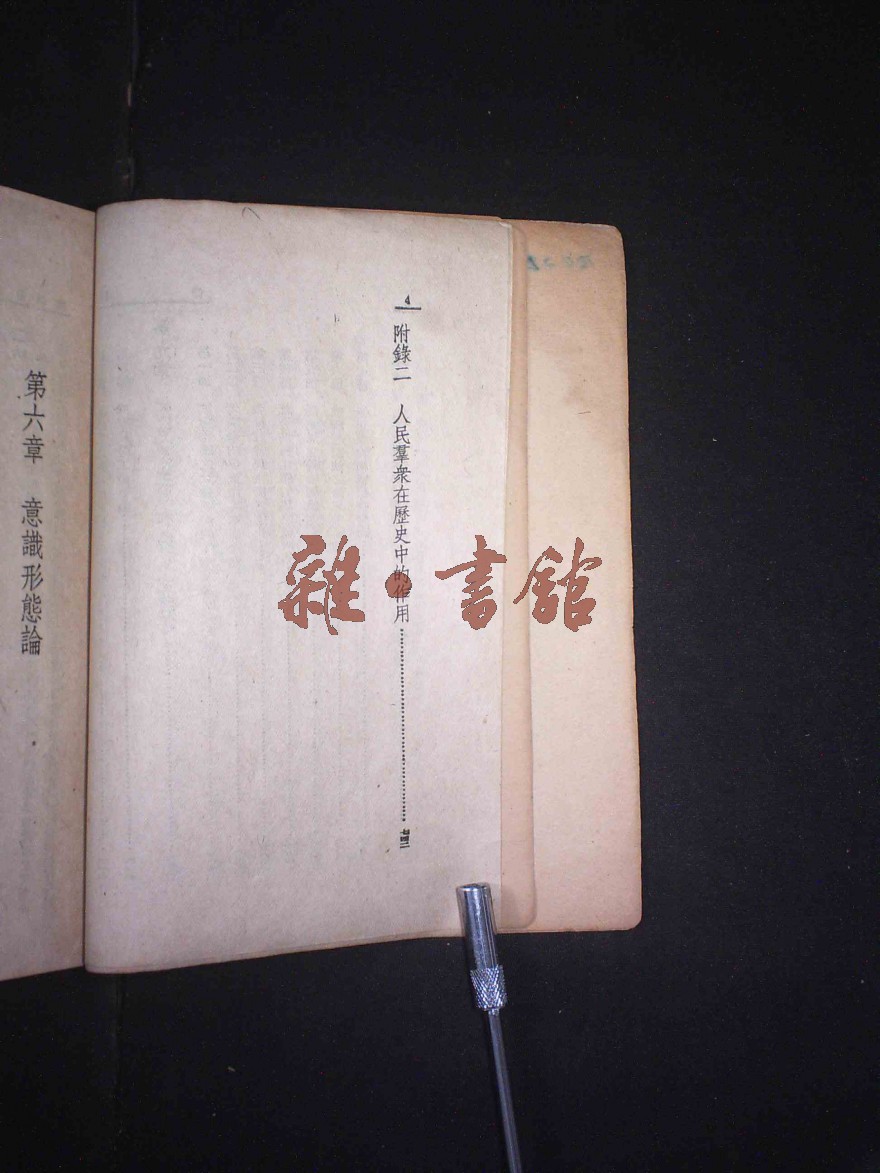 4
附錄二 人民羣衆在歷史中的作用
第六章 意識形態論
雜·書館